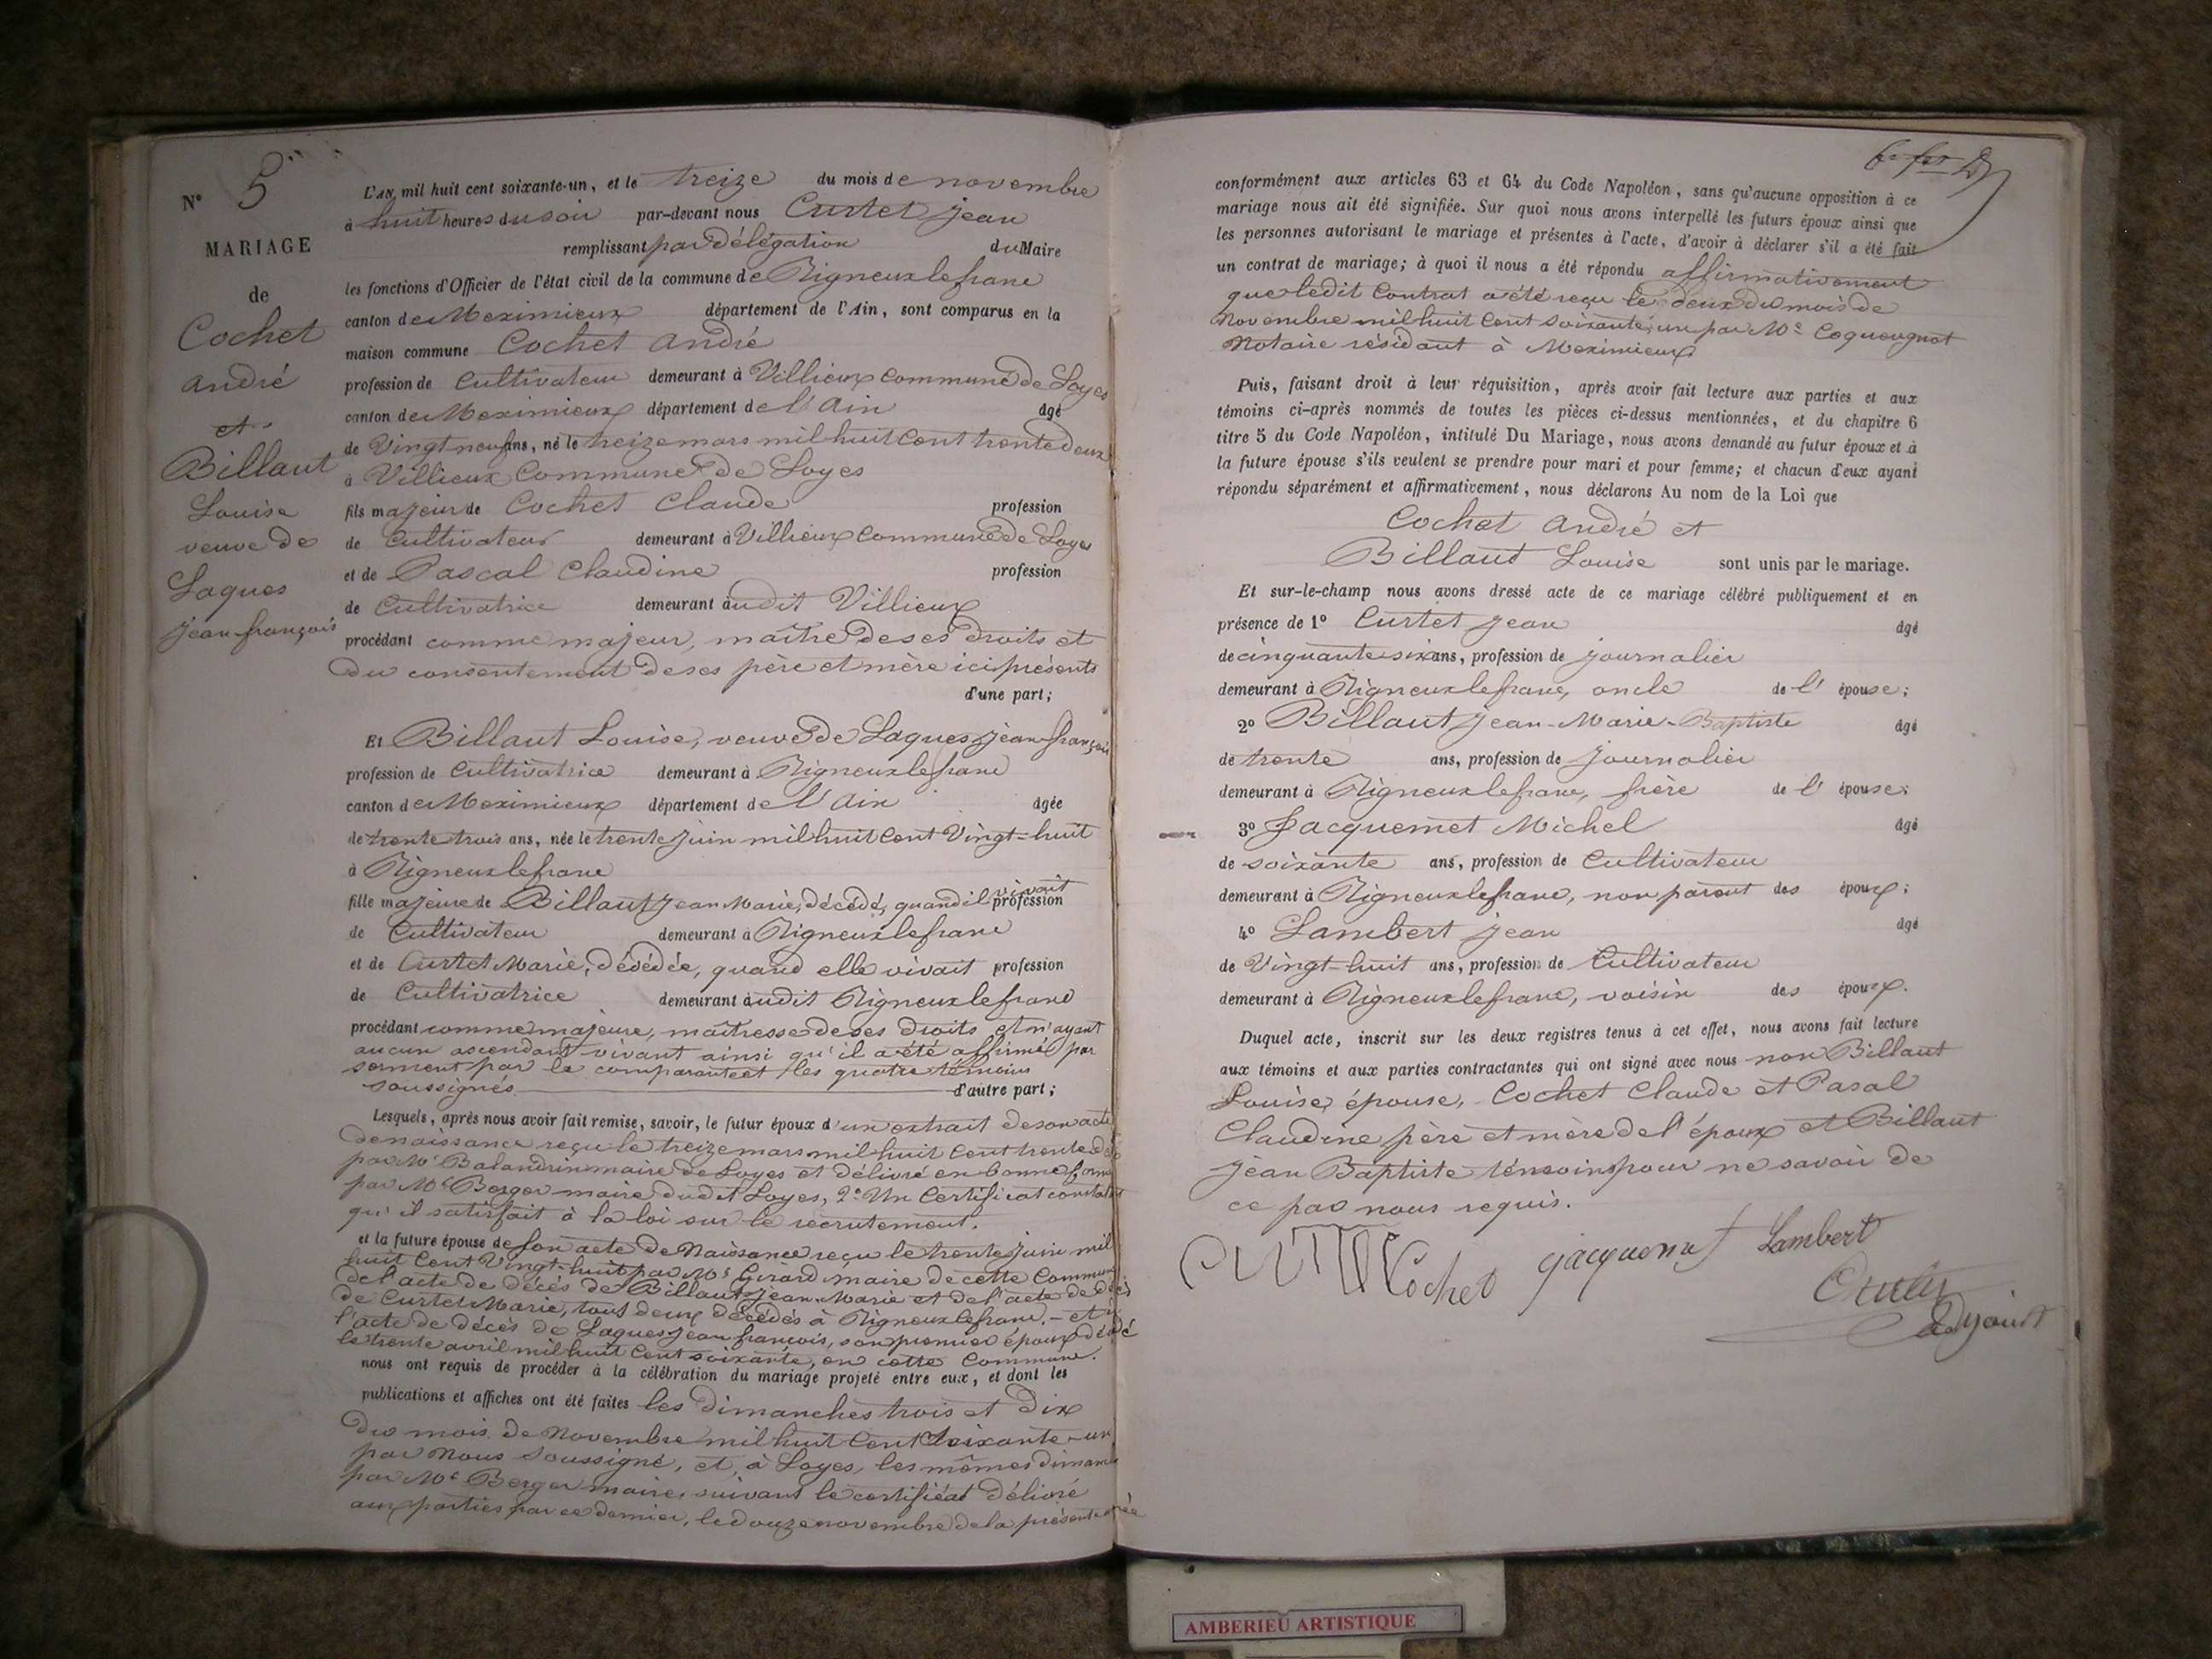 N° 5
MARIAGE
de
Cochet
André
et
Billaut
Louise
veuve de
Laques
jean-françois
L'AN mil huit cent soixante-un, et le treize du mois de novembre
à huit heures du soir par-devant nous Curtet jean
remplissant par délégation du Maire
les fonctions d'Officier de l'état civil de la commune de Rigneux le franc
canton de Meximieux département de l'Ain, sont comparus en la
maison commune Cochet André
profession de Cultivateur demeurant à Villieux commune de Loyes
canton de Meximieux département de l'Ain âgé
de Vingt neuf ans, né le treize mars mil huit Cent trente deux
à Villieux Commune de Loyes
fils majeur de Cochet Claude profession
de Cultivateur demeurant à Villieux Commune de Loyes
et de Pascal Claudine profession
de Cultivatrice demeurant audit Villieux
procédant comme majeur, maître de ses droits et
du consentement de ses père et mère ici présents
d'une part;
Et Billaut Louise, veuve de Laques jean-françois
profession de Cultivatrice demeurant à Rigneux le franc
canton de Meximieux département de l'Ain âgée
de trente trois ans, née le trente juin mil huit Cent Vingt-huit
à Rigneux le franc
fille majeure de Billaut jean Marie, décédé, quand il vivait profession
de Cultivateur demeurant à Rigneux le franc
et de Curtet Marie, dévédée, quand elle vivait profession
de Cultivatrice demeurant audit Rigneux le franc
procédant comme majeure, maîtresse de ses droits et n'ayant
aucun ascendant vivant ainsi qu'il a été affirmé par
serment par la comparante et les quatre témoins
soussignés d'autre part;
Lesquels, après nous avoir fait remise, savoir, le futur époux d'un extrait de son acte
de naissance reçu le treize mars mil huit Cent trente deux
par Mr Balandrin maire de Loyes et délivré en bonne forme
par Mr Berger maire dudit Loyes, 2° Un Certificat constatant
qu'il satisfait à la loi sur le recrutement.
et la future épouse de son acte de Naissance reçu le trente juin mil
huit Cent Vingt-huit par Mr Girard maire de cette Commune
de l'acte de décès de Billaut jean-Marie et de l'acte de décès
de Curtet Marie, tous deux décédés à Rigneux le franc. - et
l'acte de décès de Laques jean françois, son premier époux décédé
le trente avril mil huit Cent soixante, en cette Commune.
nous ont requis de procéder à la célébration du mariage projeté entre eux, et dont les
publications et affiches ont été faites les dimanches trois et dix
du mois de Novembre mil huit Cent soixante-un
par Nous Soussigné, et, à Loyes, les mêmes dimanches
par Mr Berger maire, suivant le certificat délivré
aux parties par ce dernier, le douze novembre de la présente année
conformément aux articles 63 et 64 du Code Napoléon, sans qu'aucune opposition à ce
mariage nous ait été signifiée. Sur quoi nous avons interpellé les futurs époux ainsi que
les personnes autorisant le mariage et présentes à l'acte, d'avoir à déclarer s'il a été fait
un contrat de mariage; à quoi il nous a été répondu affirmativement
que ledit Contrat a été reçu le deux du mois de
Novembre mil huit Cent soixante-un par Me Coqueugnot
Notaire résidant à Meximieux
Puis, faisant droit à leur réquisition, après avoir fait lecture aux parties et aux
témoins ci-après nommés de toutes les pièces ci-dessus mentionnées, et du chapitre 6
titre 5 du Code Napoléon, intitulé Du Mariage, nous avons demandé au futur époux et à
la future épouse s'ils veulent se prendre pour mari et pour femme; et chacun d'eux ayant
répondu séparément et affirmativement, nous déclarons Au nom de la Loi que
Cochet André et
Billaut Louise sont unis par le mariage.
Et sur-le-champ nous avons dressé acte de ce mariage célébré publiquement et en
présence de 1° Curtet jean âgé
de cinquante six ans, profession de journalier
demeurant à Rigneux le franc, oncle de l' épouse;
2° Billaut jean-Marie-Baptiste âgé
de trente ans, profession de journalier
demeurant à Rigneux le franc, frère de l' épouse;
3° Jacquemet Michel âgé
de soixante ans, profession de Cultivateur
demeurant à Rigneux le franc, non parent des époux;
4° Lambert jean âgé
de Vingt-huit ans, profession de Cultivateur
demeurant à Rigneux le franc, voisin des époux.
Duquel acte, inscrit sur les deux registres tenus à cet effet, nous avons fait lecture
aux témoins et aux parties contractantes qui ont signé avec nous non Billaut
Louise, épouse, Cochet Claude et Pasal
Claudine père et mère de l'époux et Billaut
jean Baptiste témoins pour ne savoir de
ce pas nous requis.
Cochet jacquemet Lambert
adjoint
AMBERIEU ARTISTIQUE